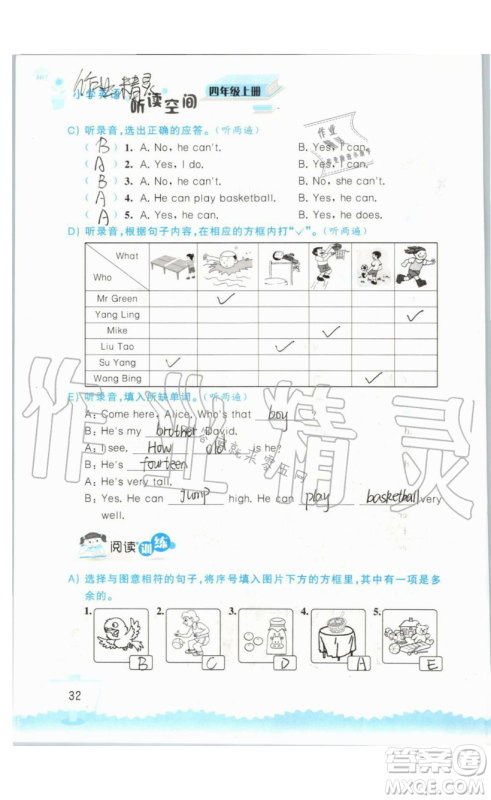 小学英语 作业精灵
听读空间 四年级上册
C) 听录音,选出正确的应答。(听两遍)
( B ) 1. A. No, he can't. B. Yes, I can.
( A ) 2. A. Yes, I do. B. Yes, I can.
( B ) 3. A. No, he can't. B. No, she can't.
( A ) 4. A. He can play basketball. B. Yes, he can.
( A ) 5. A. Yes, he can. B. Yes, he does.
D) 听录音,根据句子内容,在相应的方框内打“✓”。(听两遍)
What
Who
Mr Green ✓
Yang Ling ✓
Mike
Liu Tao ✓
Su Yang ✓
Wang Bing ✓
E) 听录音,填入所缺单词。(听两遍)
A: Come here, Alice. Who's that boy ?
B: He's my brother David.
A: I see. How old is he?
B: He's fourteen
A: He's very tall.
B: Yes. He can jump high. He can play basketball very
well.
阅读训练
A) 选择与图意相符的句子,将序号填入图片下方的方框里,其中有多
余的。
1. 2. 3. 4. 5.
B C D A E
32
作业精灵
答案圈
MXQE.COM